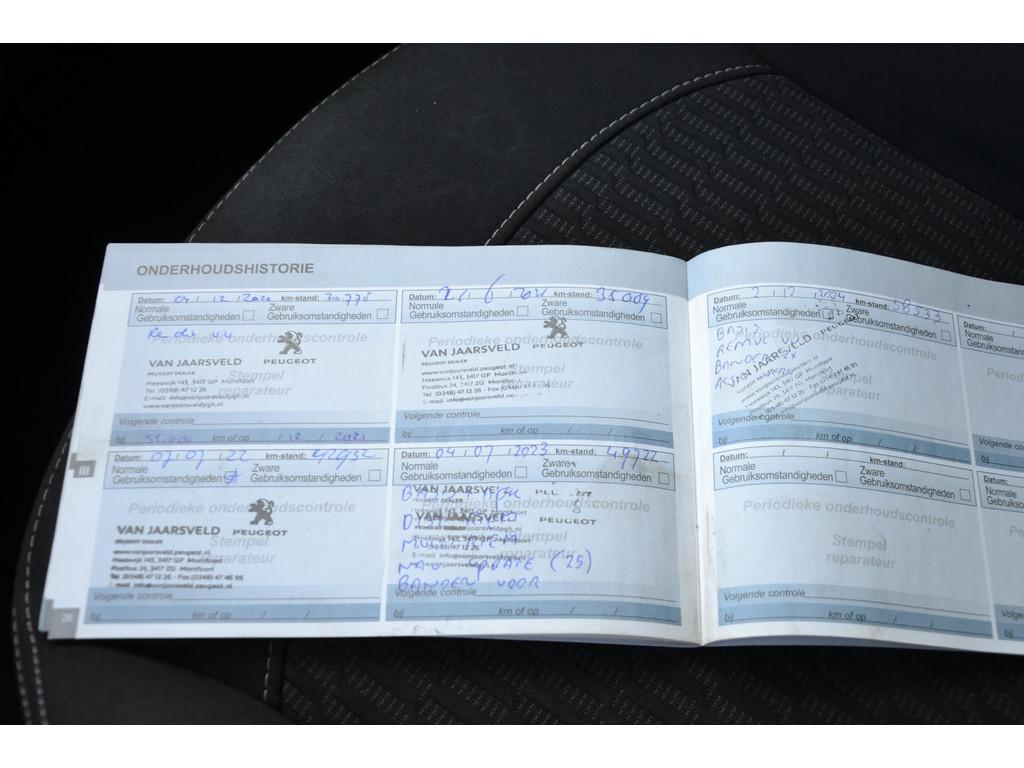 ONDERHOUDSHISTORIE
Datum: 04 / 12 / 2020 km-stand: 30.778
Normale Gebruiksomstandigheden
Zware Gebruiksomstandigheden
Periodieke onderhoudscontrole
VAN JAARSVELD PEUGEOT
PEUGEOT DEALER
Heeswijk 143, 3417 GP Montfoort
Tel. (0348) 47 12 26
E-mail info@vanjaarsveldpgh.nl
www.vanjaarsveldpgh.nl
Stempel
reparateur
Volgende controle
bij 55.000 km of op / 12 / 2021
Datum: 2 / 6 / 2021 km-stand: 35004
Normale Gebruiksomstandigheden
Zware Gebruiksomstandigheden
Periodieke onderhoudscontrole
VAN JAARSVELD PEUGEOT
PEUGEOT DEALER
www.vanjaarsveld.peugeot.nl
Heeswijk 143, 3417 GP Montfoort
Postbus 24, 3417 ZG Montfoort
Tel. (0348) 47 12 26 - Fax (0348)
E-mail info@vanjaarsveld.pe
Stempel
reparateur
Volgende controle
bij km of op / /
Datum: 07 / 07 / 22 km-stand: 42932
Normale Gebruiksomstandigheden
Zware Gebruiksomstandigheden
Periodieke onderhoudscontrole
VAN JAARSVELD PEUGEOT
PEUGEOT DEALER
www.vanjaarsveld.peugeot.nl
Heeswijk 143, 3417 GP Montfoort
Postbus 24, 3417 ZG Montfoort
Tel. (0348) 47 12 26 - Fax (0348) 47 46 95
E-mail info@vanjaarsveld.peugeot.nl
Stempel
reparateur
Volgende controle
bij km of op / /
Datum: 04 / 07 / 2023 km-stand: 49722
Normale Gebruiksomstandigheden
Zware Gebruiksomstandigheden
Periodieke onderhoudscontrole
VAN JAARSVELD
PEUGEOT
Stempel
reparateur
NAV UPDATE (25)
BANDEN VOOR
Volgende controle
bij km of op / /
Datum: 2 / 12 / 2024 km-stand: 58533
Normale Gebruiksomstandigheden
Zware Gebruiksomstandigheden
Periodieke onderhoudscontrole
VAN JAARSVELD PEUGEOT
BANDEN 2x
Stempel
reparateur
Volgende controle
bij km of op / /
Datum: / / km-stand:
Normale Gebruiksomstandigheden
Zware Gebruiksomstandigheden
Periodieke onderhoudscontrole
Stempel
reparateur
Volgende controle
bij km of op / /
Datum: /
Normale
Gebruiksomstandighed
Volgende co
bij
Datum: /
Normale
Gebruiksomst
Volge
bij
III
26